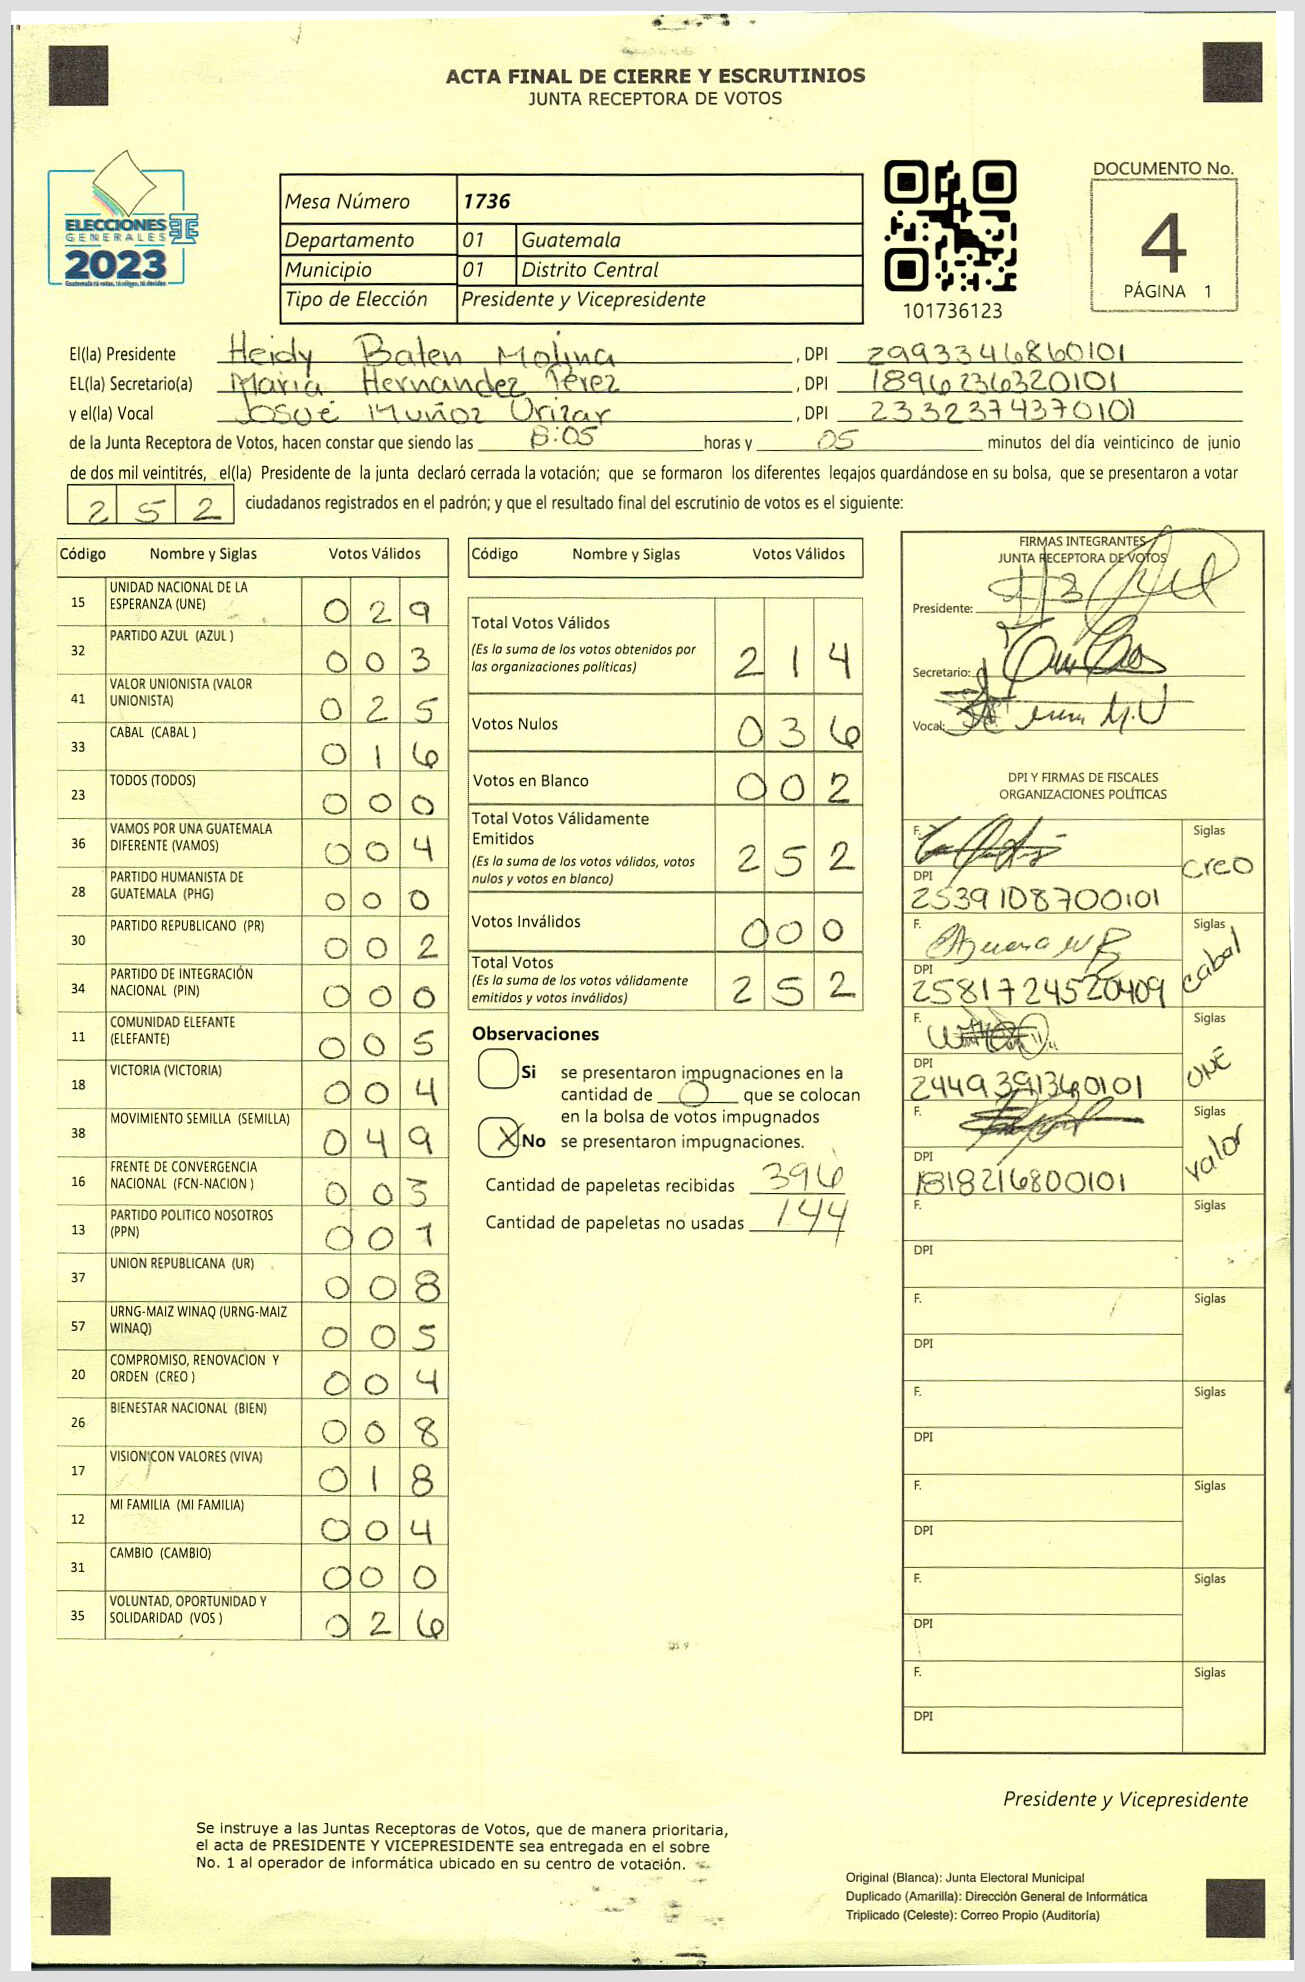 ACTA FINAL DE CIERRE Y ESCRUTINIOS
JUNTA RECEPTORA DE VOTOS
ELECCIONES
GENERALES
2023
Guatemala tú votas, tú eliges, tú decides
Mesa Número 1736
Departamento 01 Guatemala
Municipio 01 Distrito Central
Tipo de Elección Presidente y Vicepresidente
101736123
DOCUMENTO No.
4
PÁGINA 1
El(la) Presidente Heidy Baten Molina , DPI 2993346860101
EL(la) Secretario(a) Maria Hernandez Pérez , DPI 1896236320101
y el(la) Vocal Josué Muñoz Orizar , DPI 2332374370101
de la Junta Receptora de Votos, hacen constar que siendo las 8:05 horas y 05 minutos del día veinticinco de junio
de dos mil veintitrés, el(la) Presidente de la junta declaró cerrada la votación; que se formaron los diferentes legajos guardándose en su bolsa, que se presentaron a votar
252 ciudadanos registrados en el padrón; y que el resultado final del escrutinio de votos es el siguiente:
Código Nombre y Siglas Votos Válidos
15 UNIDAD NACIONAL DE LA ESPERANZA (UNE) 029
32 PARTIDO AZUL (AZUL ) 003
41 VALOR UNIONISTA (VALOR UNIONISTA) 025
33 CABAL (CABAL ) 016
23 TODOS (TODOS) 000
36 VAMOS POR UNA GUATEMALA DIFERENTE (VAMOS) 004
28 PARTIDO HUMANISTA DE GUATEMALA (PHG) 000
30 PARTIDO REPUBLICANO (PR) 002
34 PARTIDO DE INTEGRACIÓN NACIONAL (PIN) 000
11 COMUNIDAD ELEFANTE (ELEFANTE) 005
18 VICTORIA (VICTORIA) 004
38 MOVIMIENTO SEMILLA (SEMILLA) 049
16 FRENTE DE CONVERGENCIA NACIONAL (FCN-NACION ) 003
13 PARTIDO POLITICO NOSOTROS (PPN) 001
37 UNION REPUBLICANA (UR) 008
57 URNG-MAIZ WINAQ (URNG-MAIZ WINAQ) 005
20 COMPROMISO, RENOVACION Y ORDEN (CREO ) 004
26 BIENESTAR NACIONAL (BIEN) 008
17 VISION CON VALORES (VIVA) 018
12 MI FAMILIA (MI FAMILIA) 004
31 CAMBIO (CAMBIO) 000
35 VOLUNTAD, OPORTUNIDAD Y SOLIDARIDAD (VOS ) 026
Código Nombre y Siglas Votos Válidos
Total Votos Válidos 214
(Es la suma de los votos obtenidos por
las organizaciones políticas)
Votos Nulos 036
Votos en Blanco 002
Total Votos Válidamente
Emitidos 252
(Es la suma de los votos válidos, votos
nulos y votos en blanco)
Votos Inválidos 000
Total Votos 252
(Es la suma de los votos válidamente
emitidos y votos inválidos)
Observaciones
Si se presentaron impugnaciones en la
cantidad de 0 que se colocan
en la bolsa de votos impugnados
X No se presentaron impugnaciones.
Cantidad de papeletas recibidas 396
Cantidad de papeletas no usadas 144
FIRMAS INTEGRANTES
JUNTA RECEPTORA DE VOTOS
Presidente:
Secretario:
Vocal:
DPI Y FIRMAS DE FISCALES
ORGANIZACIONES POLÍTICAS
F. Siglas
creo
DPI
2539108700101
F. Siglas
cabal
DPI
2581724520409
F. Siglas
UNE
DPI
2449391360101
F. Siglas
valor
DPI
1818216800101
F. Siglas
DPI
F. Siglas
DPI
F. Siglas
DPI
F. Siglas
DPI
F. Siglas
DPI
F. Siglas
DPI
Presidente y Vicepresidente
Se instruye a las Juntas Receptoras de Votos, que de manera prioritaria,
el acta de PRESIDENTE Y VICEPRESIDENTE sea entregada en el sobre
No. 1 al operador de informática ubicado en su centro de votación.
Original (Blanca): Junta Electoral Municipal
Duplicado (Amarilla): Dirección General de Informática
Triplicado (Celeste): Correo Propio (Auditoría)